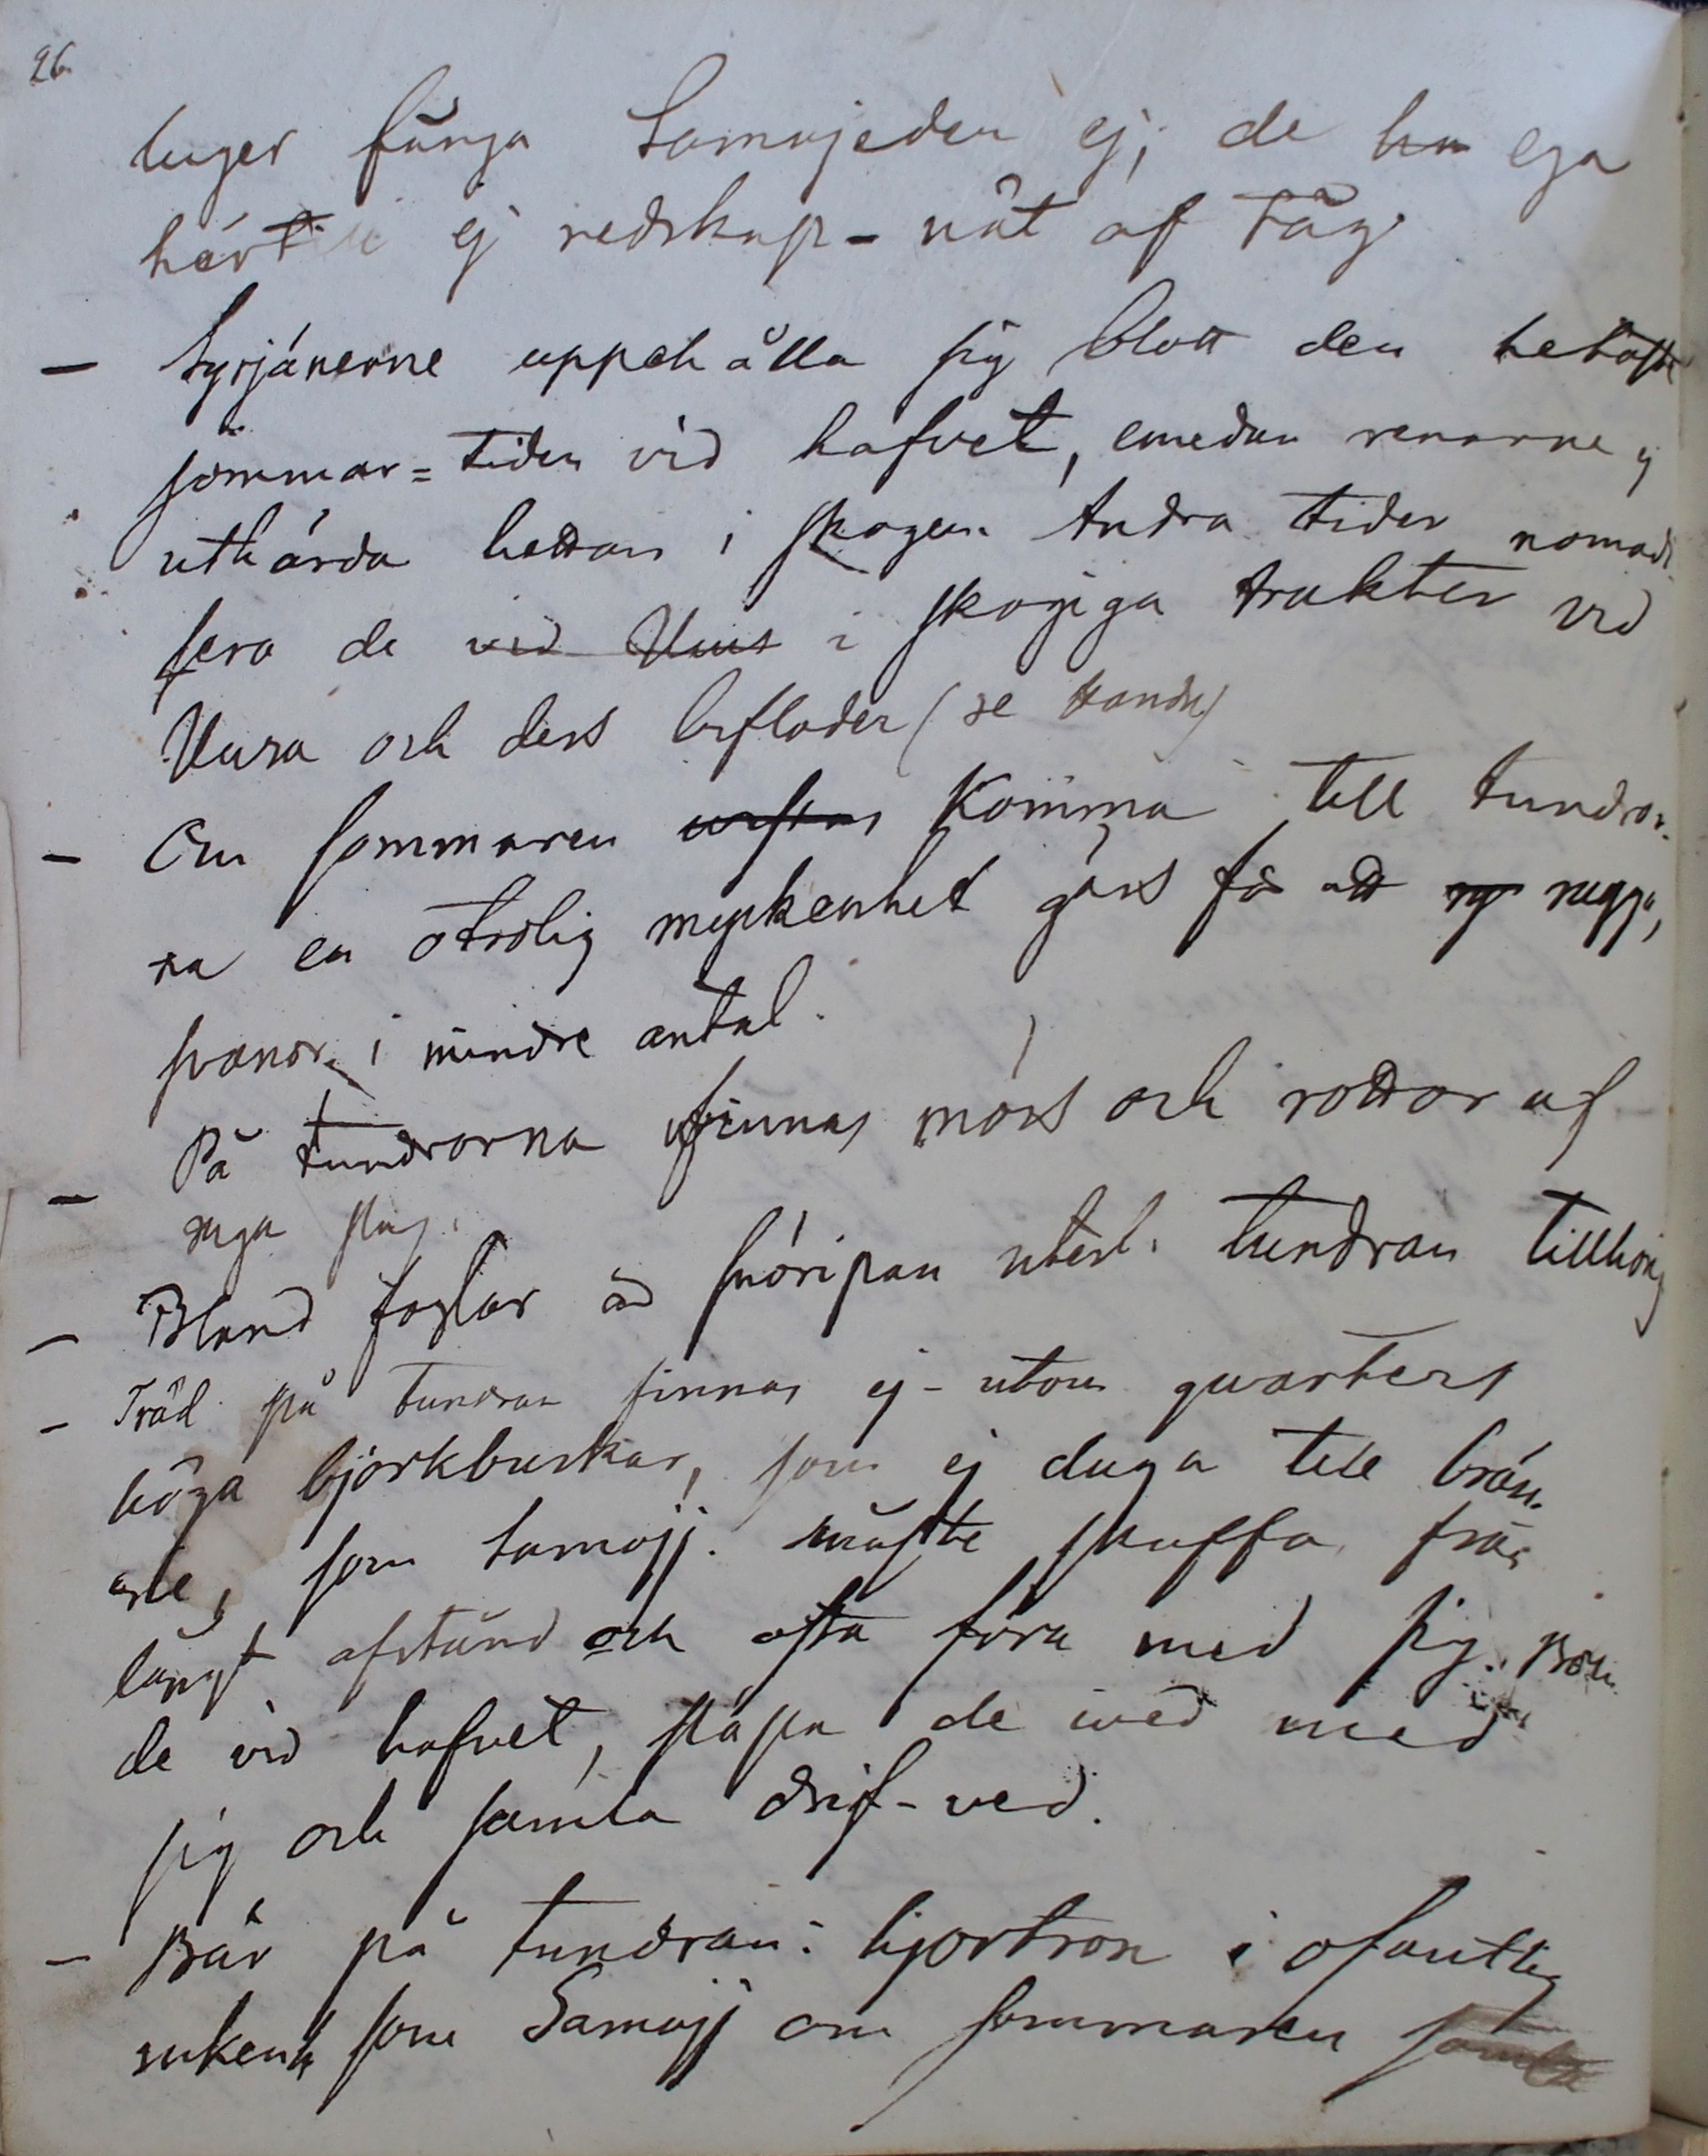 26.
luger fånga Samojeden ej; de ha ega
härtill ej redskap - nät af tåg.
– Syrjänerne uppehålla sig blott den hetaste
sommar=tiden vid hafvet, emedan renarne ej
uthärda hettan i skogen. Andra tider nomadi-
sera de vid Uus i skogiga trakter vid
Uusa och dess bifloder (se
– Om sommaren komma till tundror-
na en otrolig myckenhet gäss för att rugga,
svanor i mindre antal.
– På tundrorna finnas möss och rottor af
slag.
– Bland foglar är snöripan utesl. tundran tillhörig
– Träd på tundran finnas ej - utom qvarters
höga björkbuskar, som ej duga till brän-
sle, som Samojj. måste skaffa från
långt afstånd och ofta föra med sig. Bo
de vid hafvet, släpa de ved med
sig och samla drif-ved.
– Bär på tundran: hjortron i ofantlig
som Samojj om sommaren samla